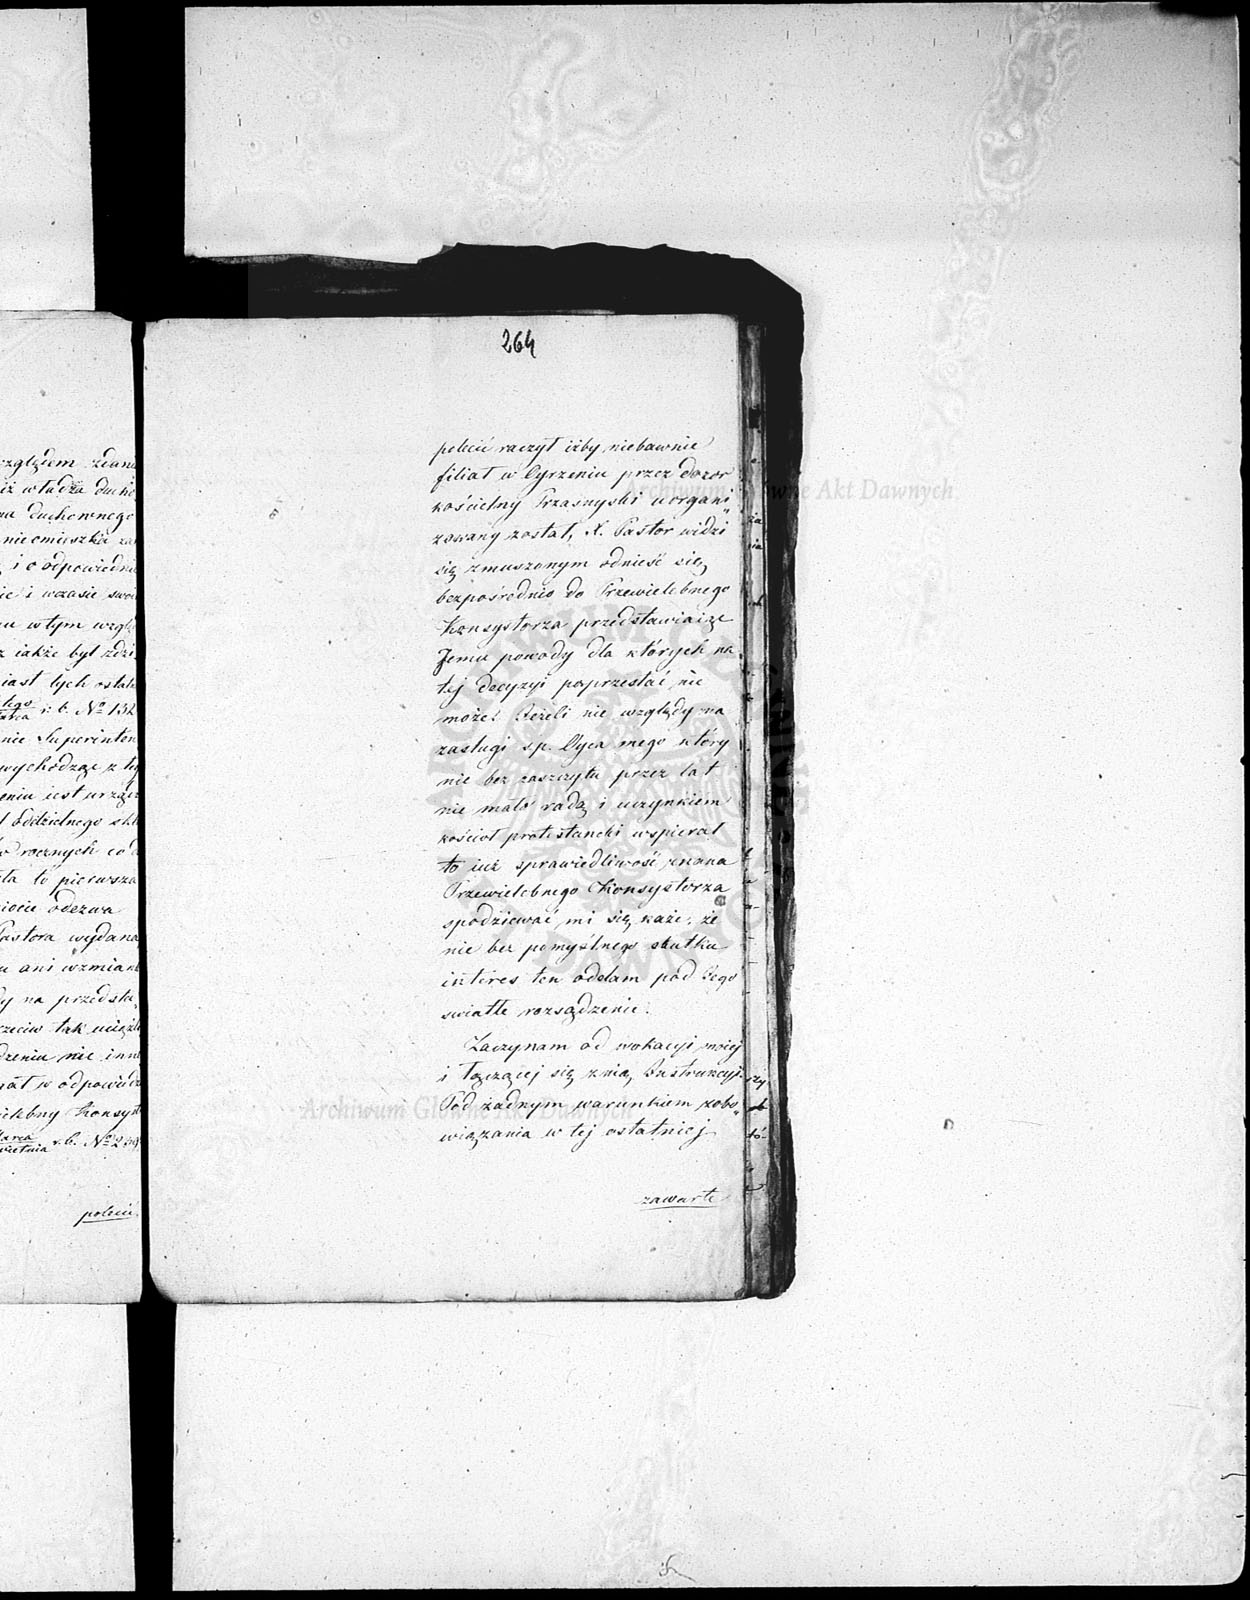 264
polecić raczył iżby niebawnie
filiał w Cyrzeniu przez dozor
kościelny Przasnyski uorgani„
zowany został, X. Pastor widzi
się zmuszonym odnieść się
bezpośrednio do Przewielebnego
Konsystorza przedstawiaiąc
Jemu powody dla których na
tej decyzyi poprzestać nie
może. Jeżeli nie względy na
zasługi sp. Oyca mego który
nie bez zaszczytu przez lat
nie mało radą i uczynkiem
kościoł protestancki wspierał
to iuż sprawiedliwość znana
Przewielebnego Konsystorza
spodziewać mi się każe, że
nie bez pomyślnego skutku
interes ten oddam pod Jego
swiatłe rozsądzenie.
Zaczynam od wokacyi moiej
i łączącej się z nią Instrukcyi.
Pod żadnym warunkiem zobo„
wiązania w tej ostatniej
zawarte
względem zdani
iż władza ducho
na duchownego
nieomieszka za
i o odpowiedni
ie i wczasie swo
u w tym wzglę
iakże był zdzi
miast tych ostat
r. b. No 132
nie Superinten
wychodząc z tej
eniu iest urząd
oddzielnego skł
rocznych co d
ta to pierwsza
odezwa
Pastora wydana
u ani wzmian
y na przedsta„
rzeciw tak uciążl
dzeniu nie inn
w odpowiedz
ielebny Konsyst
r. b. No 259
polecić
Archiwum Główne Akt Dawnych
Archiwum Główne Akt Dawnych